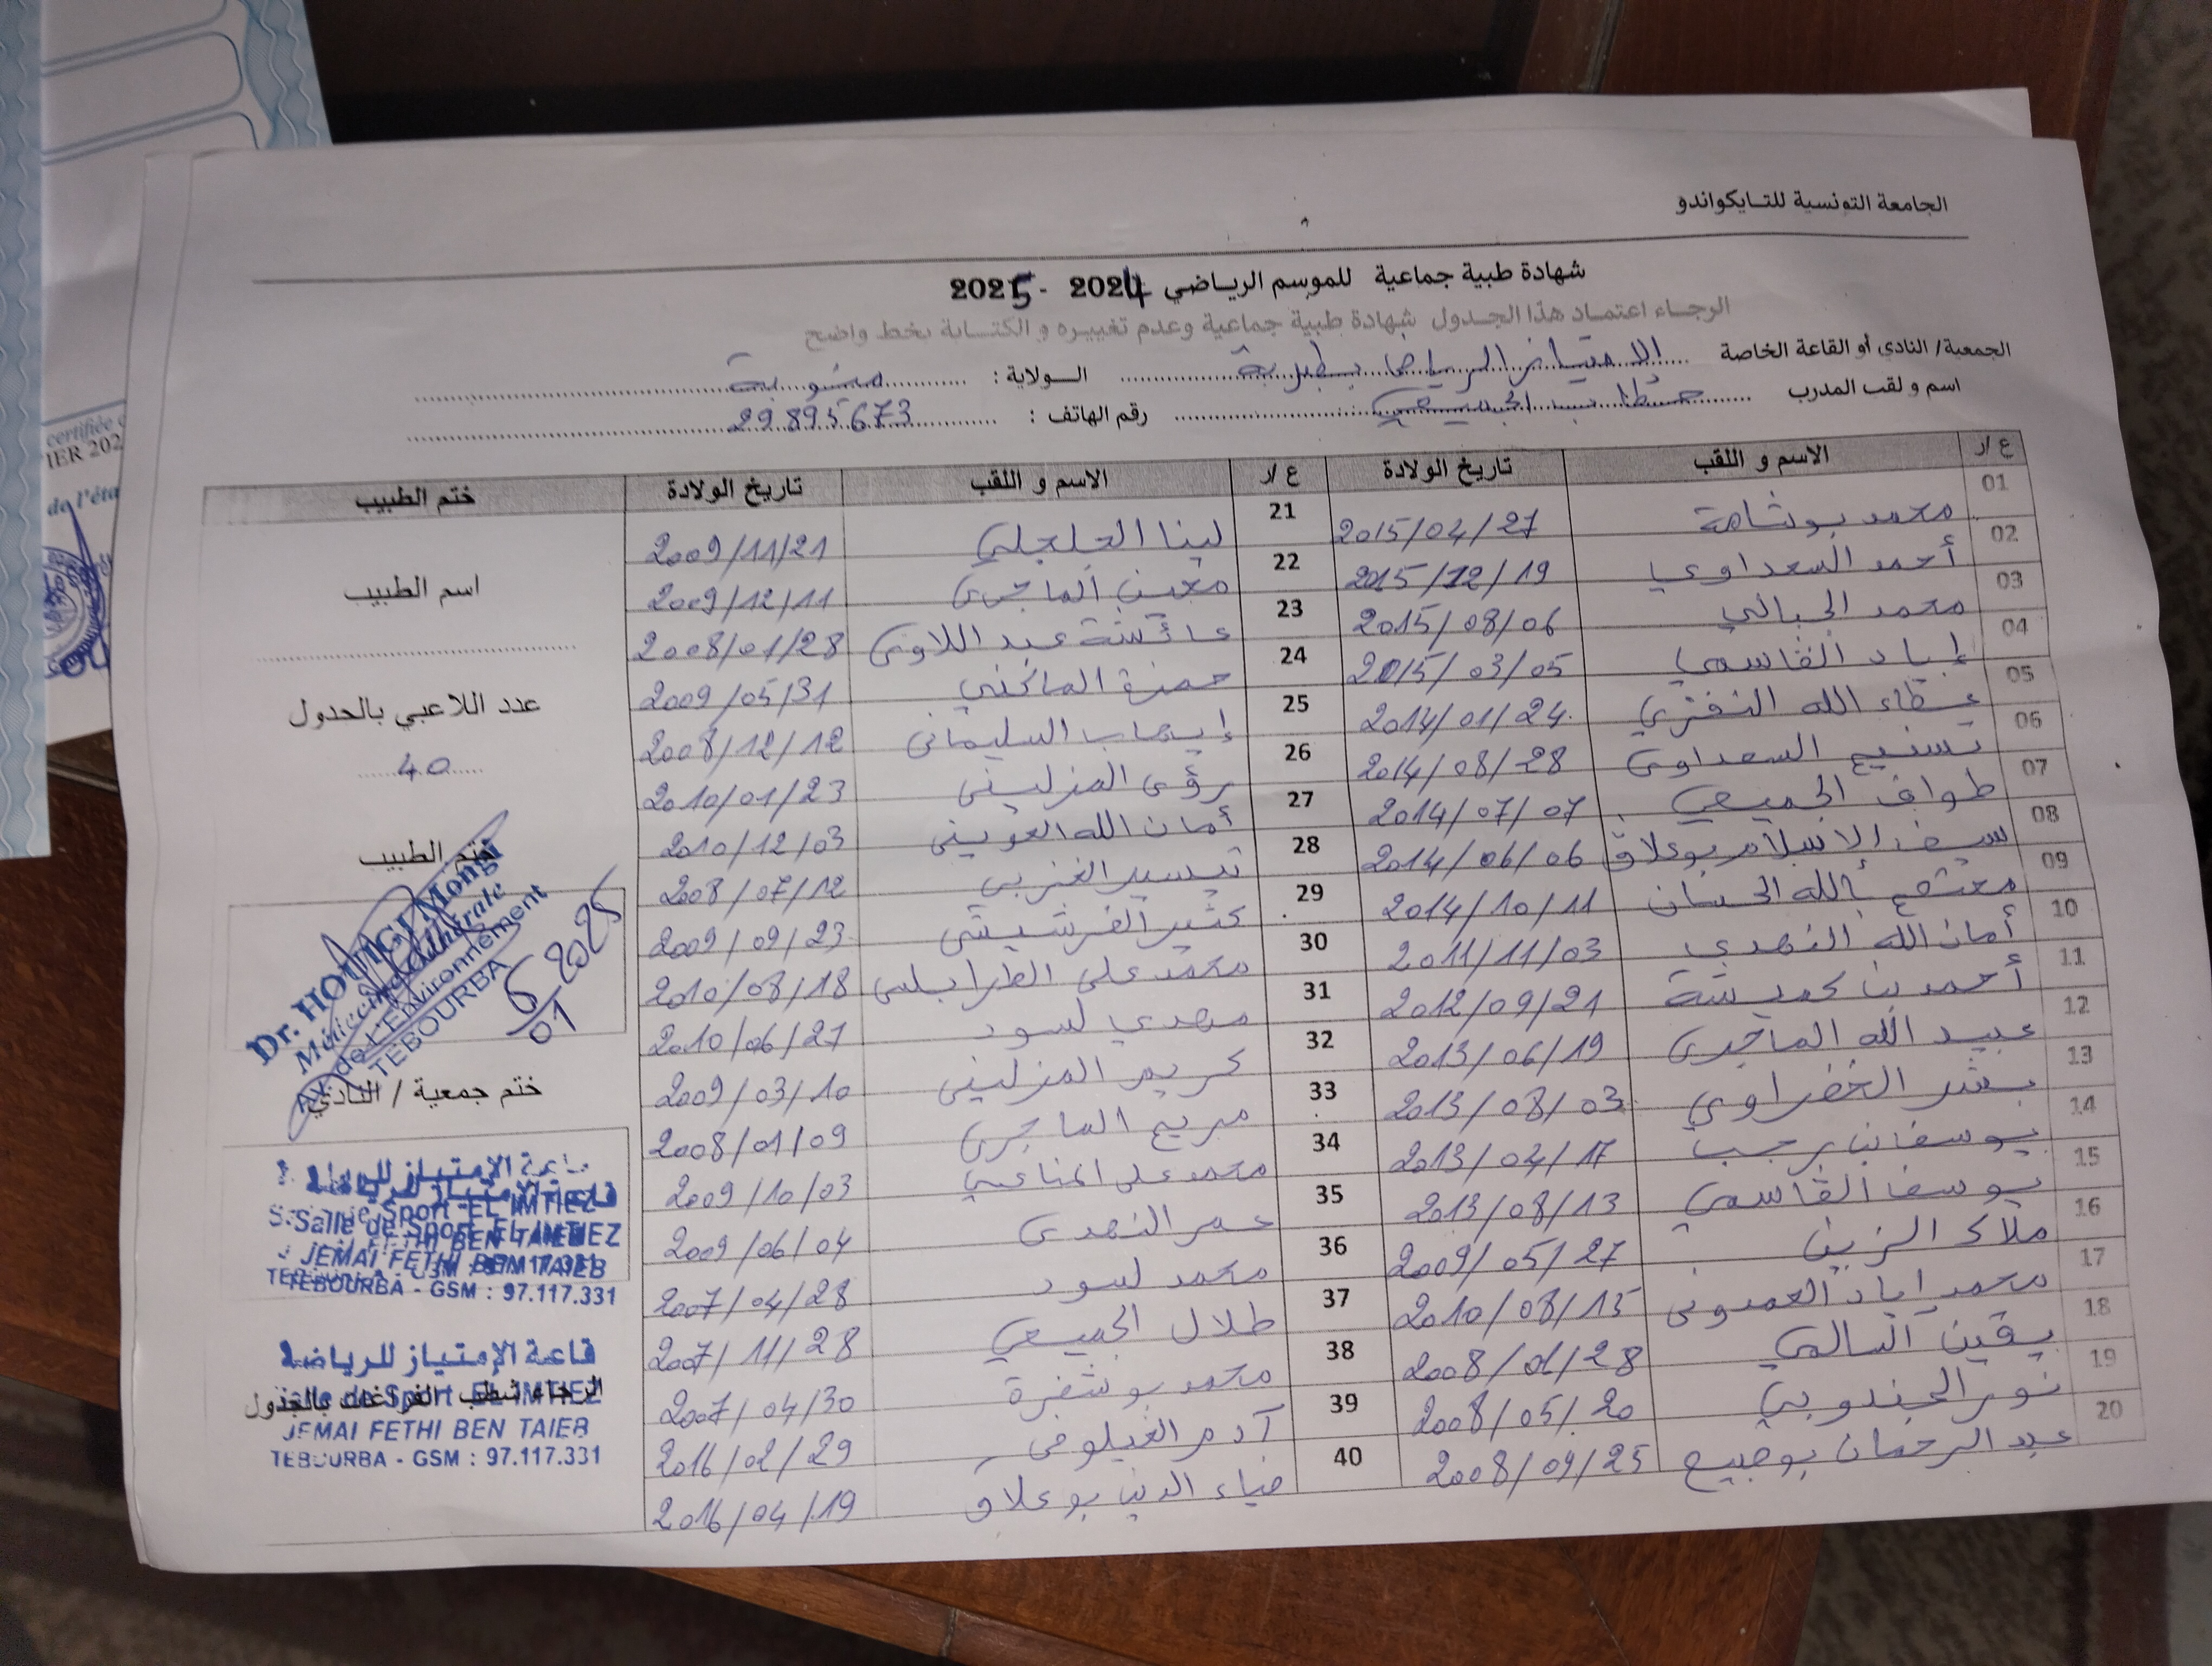 الجامعة التونسية للتايكواندو
شهادة طبية جماعية للموسم الرياضي 2024 - 2025
الرجاء اعتماد هذا الجدول شهادة طبية جماعية وعدم تغييره و الكتابة بخط واضح
الجمعية/ النادي أو القاعة الخاصة الامتياز الرياضي بطبربة الولاية : منوبة
اسم و لقب المدرب خطاب الجميعي رقم الهاتف : 29895673
ع/ر الاسم و اللقب تاريخ الولادة ع/ر الاسم و اللقب تاريخ الولادة ختم الطبيب
01 محمد بوشامة 2015/04/27 21 لينا الجلجلي 2009/11/21
02 أحمد السعداوي 2015/12/19 22 معين الماجري 2009/12/11
03 محمد الجبالي 2015/08/06 23 عائشة عبد اللاوي 2008/01/28
04 إياد القاسمي 2015/03/05 24 حمزة الماكني 2009/05/31
05 عطاء الله النفزي 2014/01/24 25 إيهاب السليماني 2008/12/12
06 تسنيم السعداوي 2014/08/28 26 رؤى المنزليني 2010/01/23
07 طواف الجميعي 2014/07/07 27 أمان الله العويني 2010/12/03
08 سيف الإسلام بوعلاق 2014/06/06 28 تيسير الغزبي 2008/07/12
09 معتصم بالله الحساني 2014/10/11 29 كثير الفرشيشي 2009/09/23
10 أمان الله النهدي 2011/11/03 30 محمد علي الطرابلسي 2010/08/18
11 أحمد بن كميشة 2012/09/21 31 مهدي لسود 2010/06/27
12 عبيد الله الماجري 2013/06/19 32 كريم المنزليني 2009/03/10
13 بشر الخضراوي 2013/08/03 33 مريم الماجري 2008/01/09
14 يوسف بن رجب 2013/04/17 34 محمد علي المناعي 2009/10/03
15 يوسف القاسمي 2013/08/13 35 عمر النهدي 2009/06/04
16 ملاك الزين 2009/05/27 36 محمد لسود 2007/04/28
17 محمد إياد العمدوني 2010/08/15 37 طلال الجميعي 2007/11/28
18 يقين السالمي 2008/01/28 38 محمد بوشفرة 2007/04/30
19 نور الجندوبي 2008/05/20 39 آدم الغيلوفي 2016/02/29
20 عبد الرحمان بوجبيح 2008/09/25 40 ضياء الدين بوعلاق 2016/04/19
اسم الطبيب
عدد اللاعبي بالجدول
40
ختم الطبيب
Mongi
Médecine Générale
Av. de L'Environnement
TEBOURBA
6/01 2025
ختم جمعية / النادي
قاعة الإمتياز للرياضة
Salle de Sport EL IMTIEZ
JEMAI FETHI BEN TAIEB
TEBOURBA - GSM : 97.117.331
قاعة الإمتياز للرياضة
الرجاء شطب الفراغات بالجدول
Salle de Sport EL IMTIEZ
JEMAI FETHI BEN TAIEB
TEBOURBA - GSM : 97.117.331
certifiée
IER 202
de l'éta